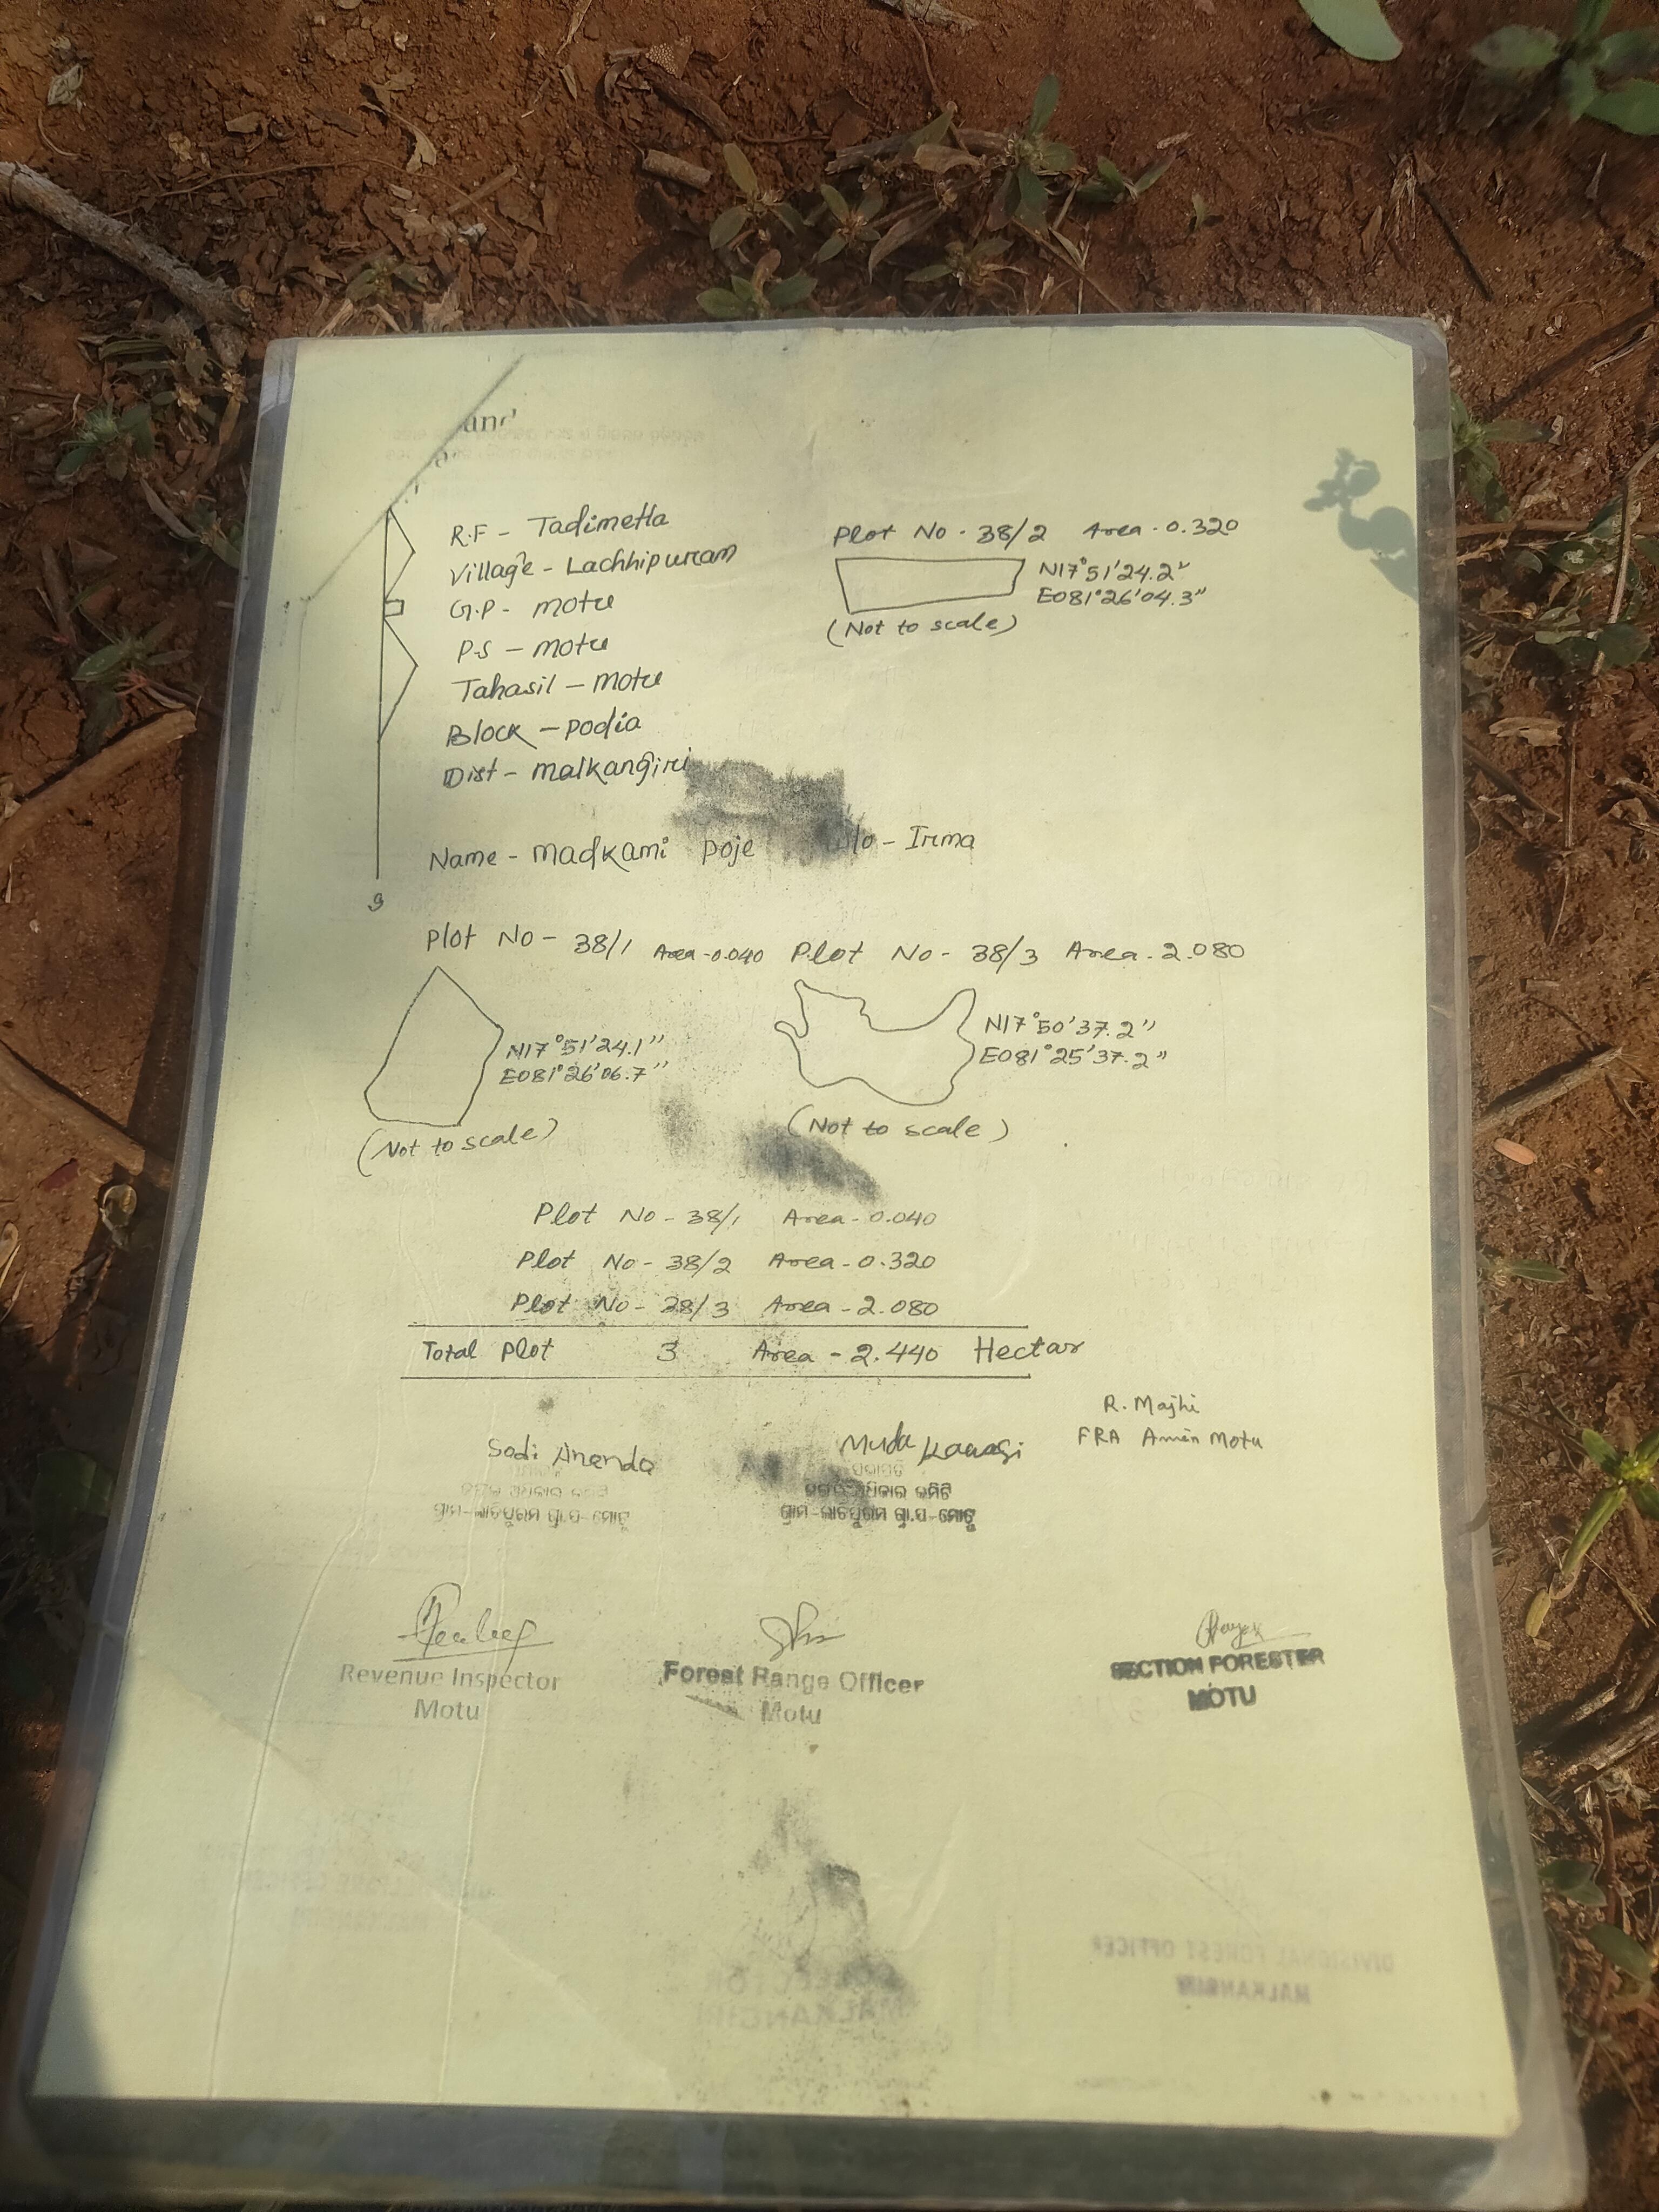 and
R.F - Tadimetla
Village - Lachhipuram
G.P - motu
P.S - motu
Tahasil - Motu
Block - podia
Dist - malkangiri
Plot No - 38/2 Area - 0.320
N17°51'24.2"
E081°26'04.3"
(Not to scale)
Name - madkami poje - Irma
Plot No - 38/1 Area - 0.040
N17°51'24.1"
E081°26'06.7"
(Not to scale)
Plot No - 38/3 Area - 2.080
N17°50'37.2"
E081°25'37.2"
(Not to scale)
Plot No - 38/1 Area - 0.040
Plot No - 38/2 Area - 0.320
Plot No - 38/3 Area - 2.080
Total Plot 3 Area - 2.440 Hectar
R. Majhi
FRA Amin Motu
Sodi Ananda
Muda Kawasi
ଗ୍ରାମ-ଲାଚ୍ଛିପୁରମ ଗ୍ରା.ପ-ମୋଟୁ
ଅଧିକାର କମିଟି
ଗ୍ରାମ-ଲାଚ୍ଛିପୁରମ ଗ୍ରା.ପ-ମୋଟୁ
Revenue Inspector
Motu
Forest Range Officer
Motu
SECTION FORESTER
MOTU
COLLECTOR
MALKANGIRI
DIVISIONAL FOREST OFFICER
MALKANGIRI